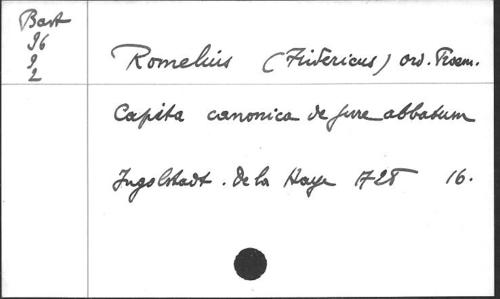 Bart
96
9
2
Romelius (Fridericus) ord. Praem.
Capita canonica de jure abbatum
Ingolstadt. de la Haye 1728 16.